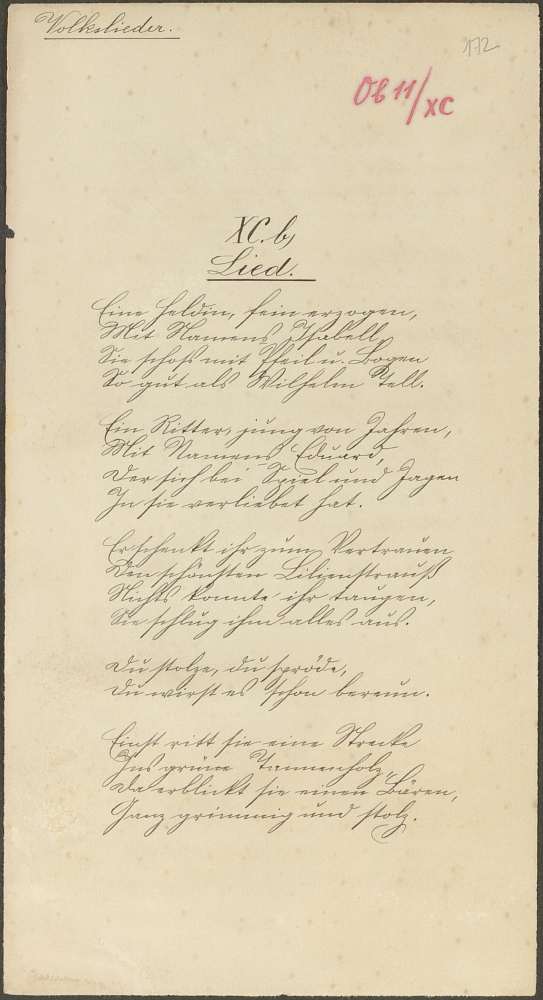 Volkslieder.
172
Ob 11/XC
XC. b,
Lied.
Eine Heldin, fein erzogen,
Mit Namens Isabell,
Sie schoß mit Pfeil u. Bogen
So gut als Wilhelm Tell.
Ein Ritter, jung von Jahren,
Mit Namens Eduard,
Der sich bei Spiel und Jagen
In sie verliebet hat.
Er schenkt ihr zum Vertrauen
Den schönsten Lilienstrauß
Nichts konnte ihr taugen,
Sie schlug ihm alles aus.
Du stolze, du spröde,
Du wirst es schon bereun.
Einst ritt sie eine Strecke
Ins grüne Tannenholz,
Da erblickt sie einen Bären,
Ganz grimmig und stolz.